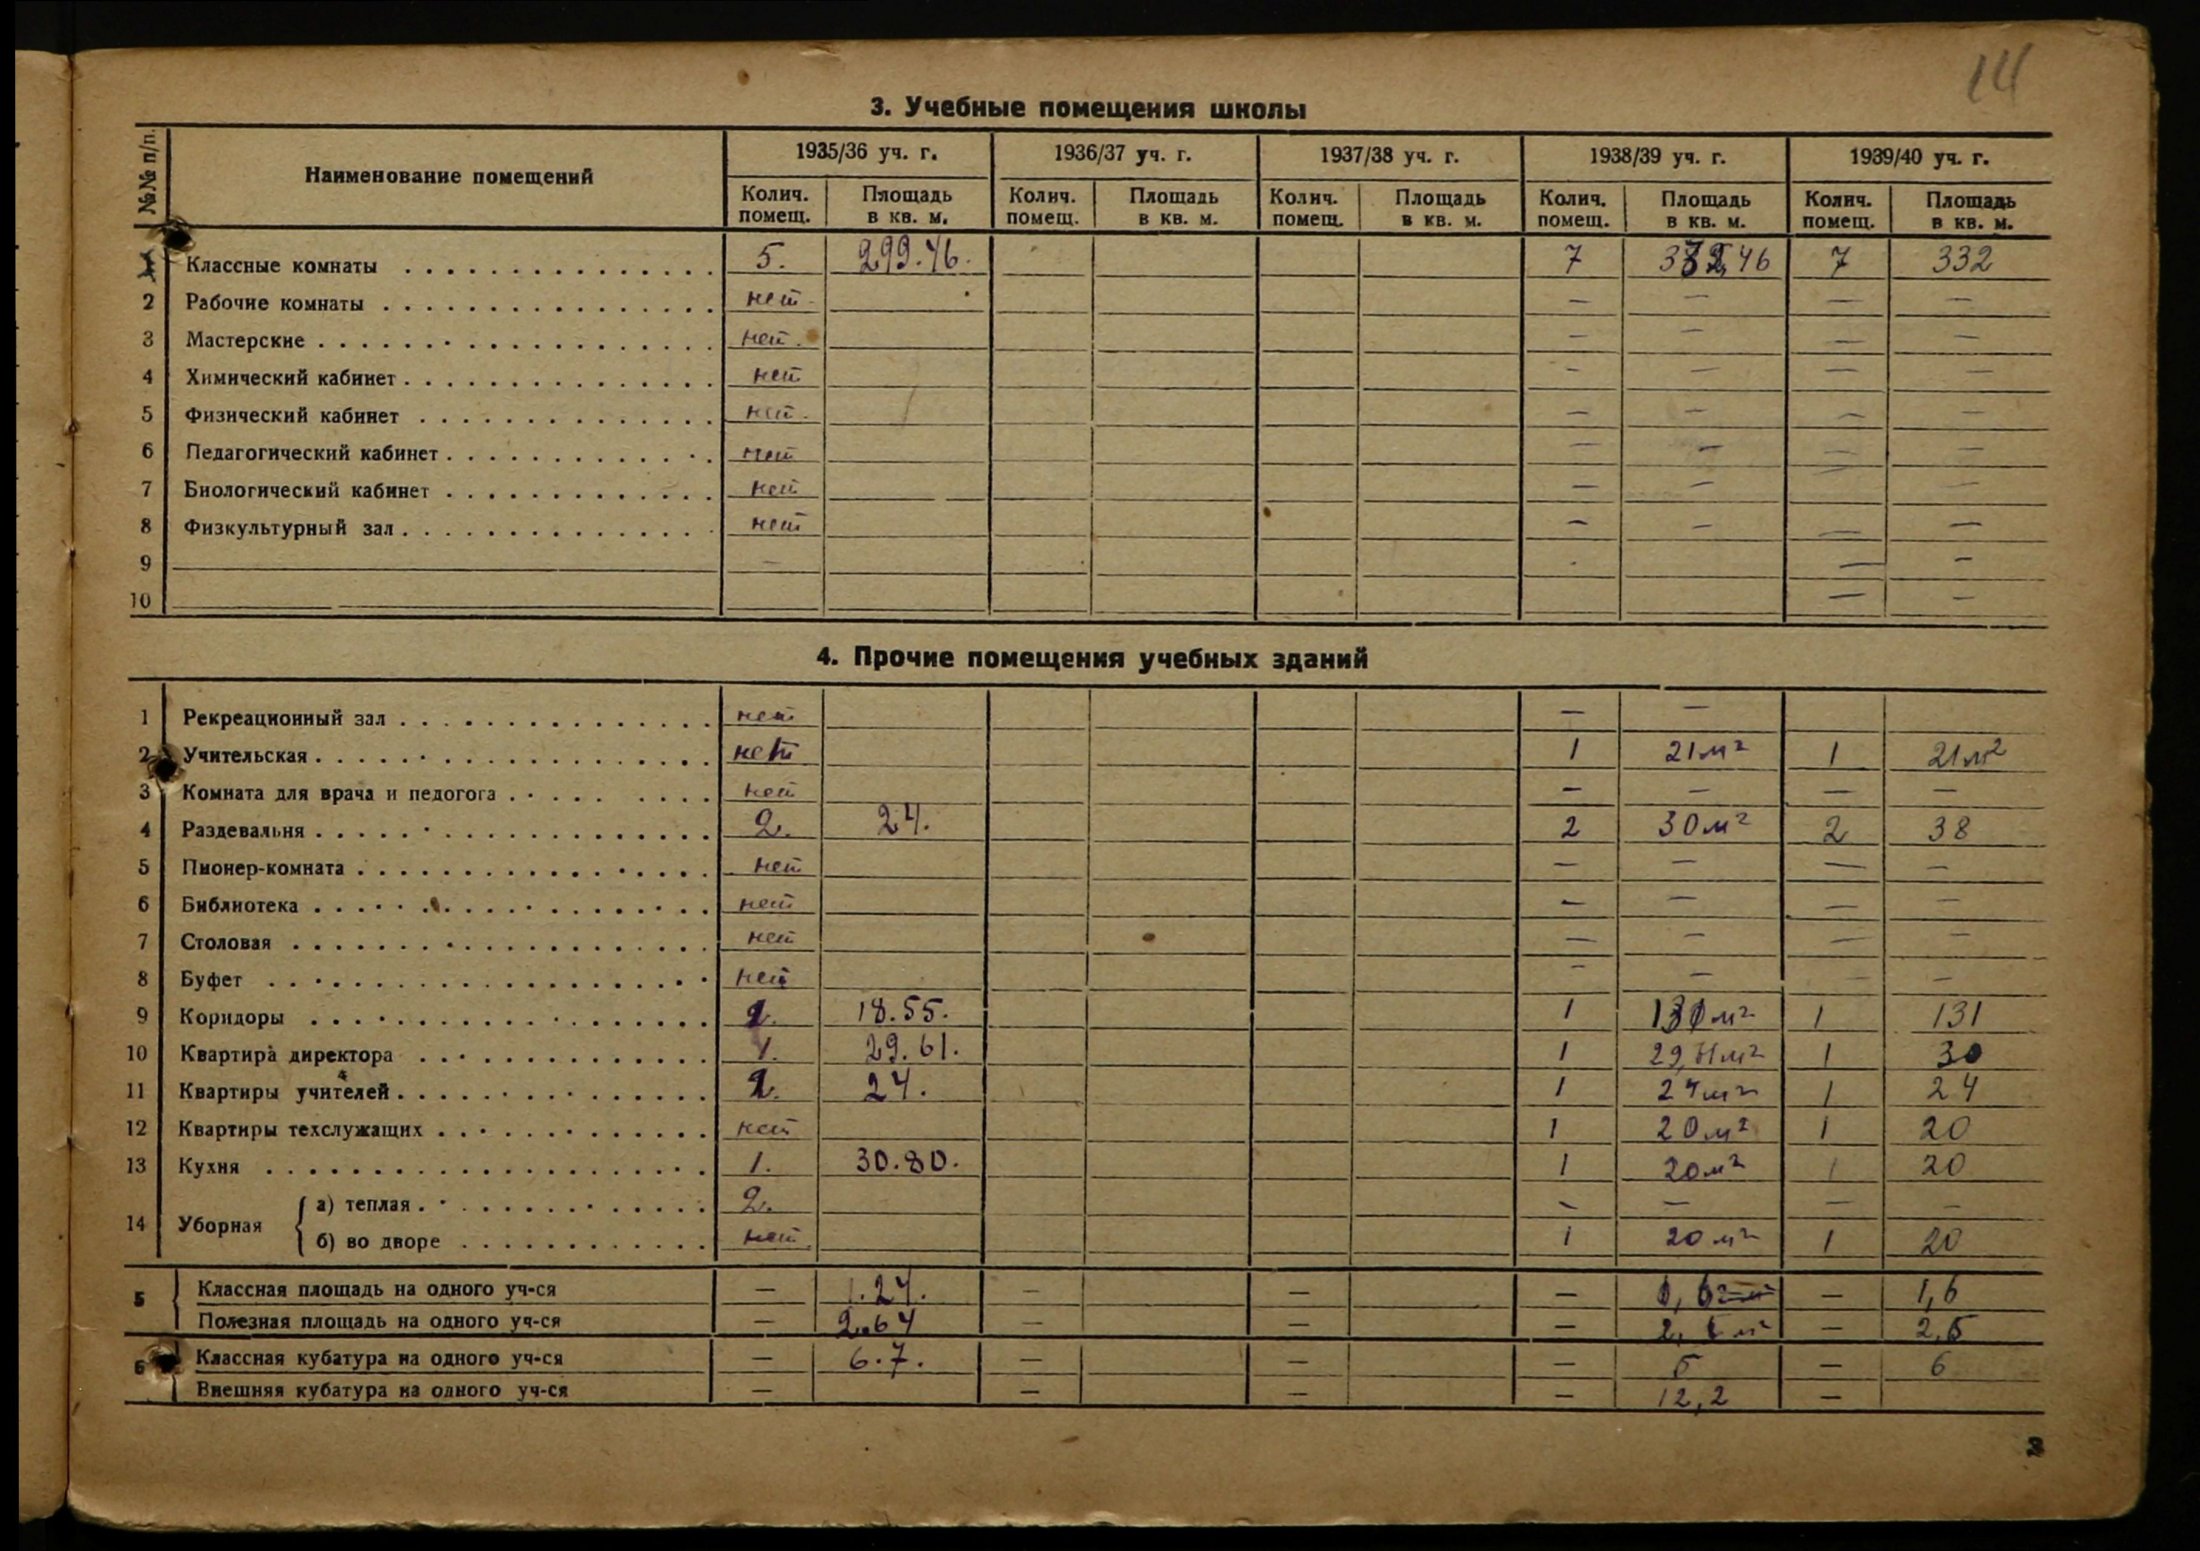 14
3. Учебные помещения школы
№№ п/п. Наименование помещений 1935/36 уч. г. 1936/37 уч. г. 1937/38 уч. г. 1938/39 уч. г. 1939/40 уч. г.
Колич. помещ. Площадь в кв. м. Колич. помещ. Площадь в кв. м. Колич. помещ. Площадь в кв. м. Колич. помещ. Площадь в кв. м. Колич. помещ. Площадь в кв. м.
Классные комнаты 5. 299.46. 7 7 332
2 Рабочие комнаты нет — — — —
3 Мастерские нет. — — — —
4 Химический кабинет нет — — — —
5 Физический кабинет нет. — — — —
6 Педагогический кабинет нет — — — —
7 Биологический кабинет нет — — — —
8 Физкультурный зал нет — — — —
9 — — —
10 — —
4. Прочие помещения учебных зданий
1 Рекреационный зал нет — —
2 Учительская нет 1 21 м² 1 21 м²
3 Комната для врача и педогога нет — — — —
4 Раздевальня 2. 24. 2 30 м² 2 38
5 Пионер-комната нет — — — —
6 Библиотека нет — — — —
7 Столовая нет — — — —
8 Буфет нет — — — —
9 Коридоры 18.55. 1 131 м² 1 131
10 Квартира директора 1. 29.61. 1 1 30
11 Квартиры учителей 24. 1 24 м² 1 24
12 Квартиры техслужащих нет 1 20 м² 1 20
13 Кухня 1. 30.80. 1 20 м² 1 20
14 Уборная а) теплая 2. — — — —
б) во дворе нет. 1 20 м² 1 20
5 Классная площадь на одного уч-ся — 1.24. — — — — 1,6
Полезная площадь на одного уч-ся — 2.64 — — — — 2,5
6 Классная кубатура на одного уч-ся — 6.7. — — — 5 — 6
Внешняя кубатура на одного уч-ся — — — — 12,2 —